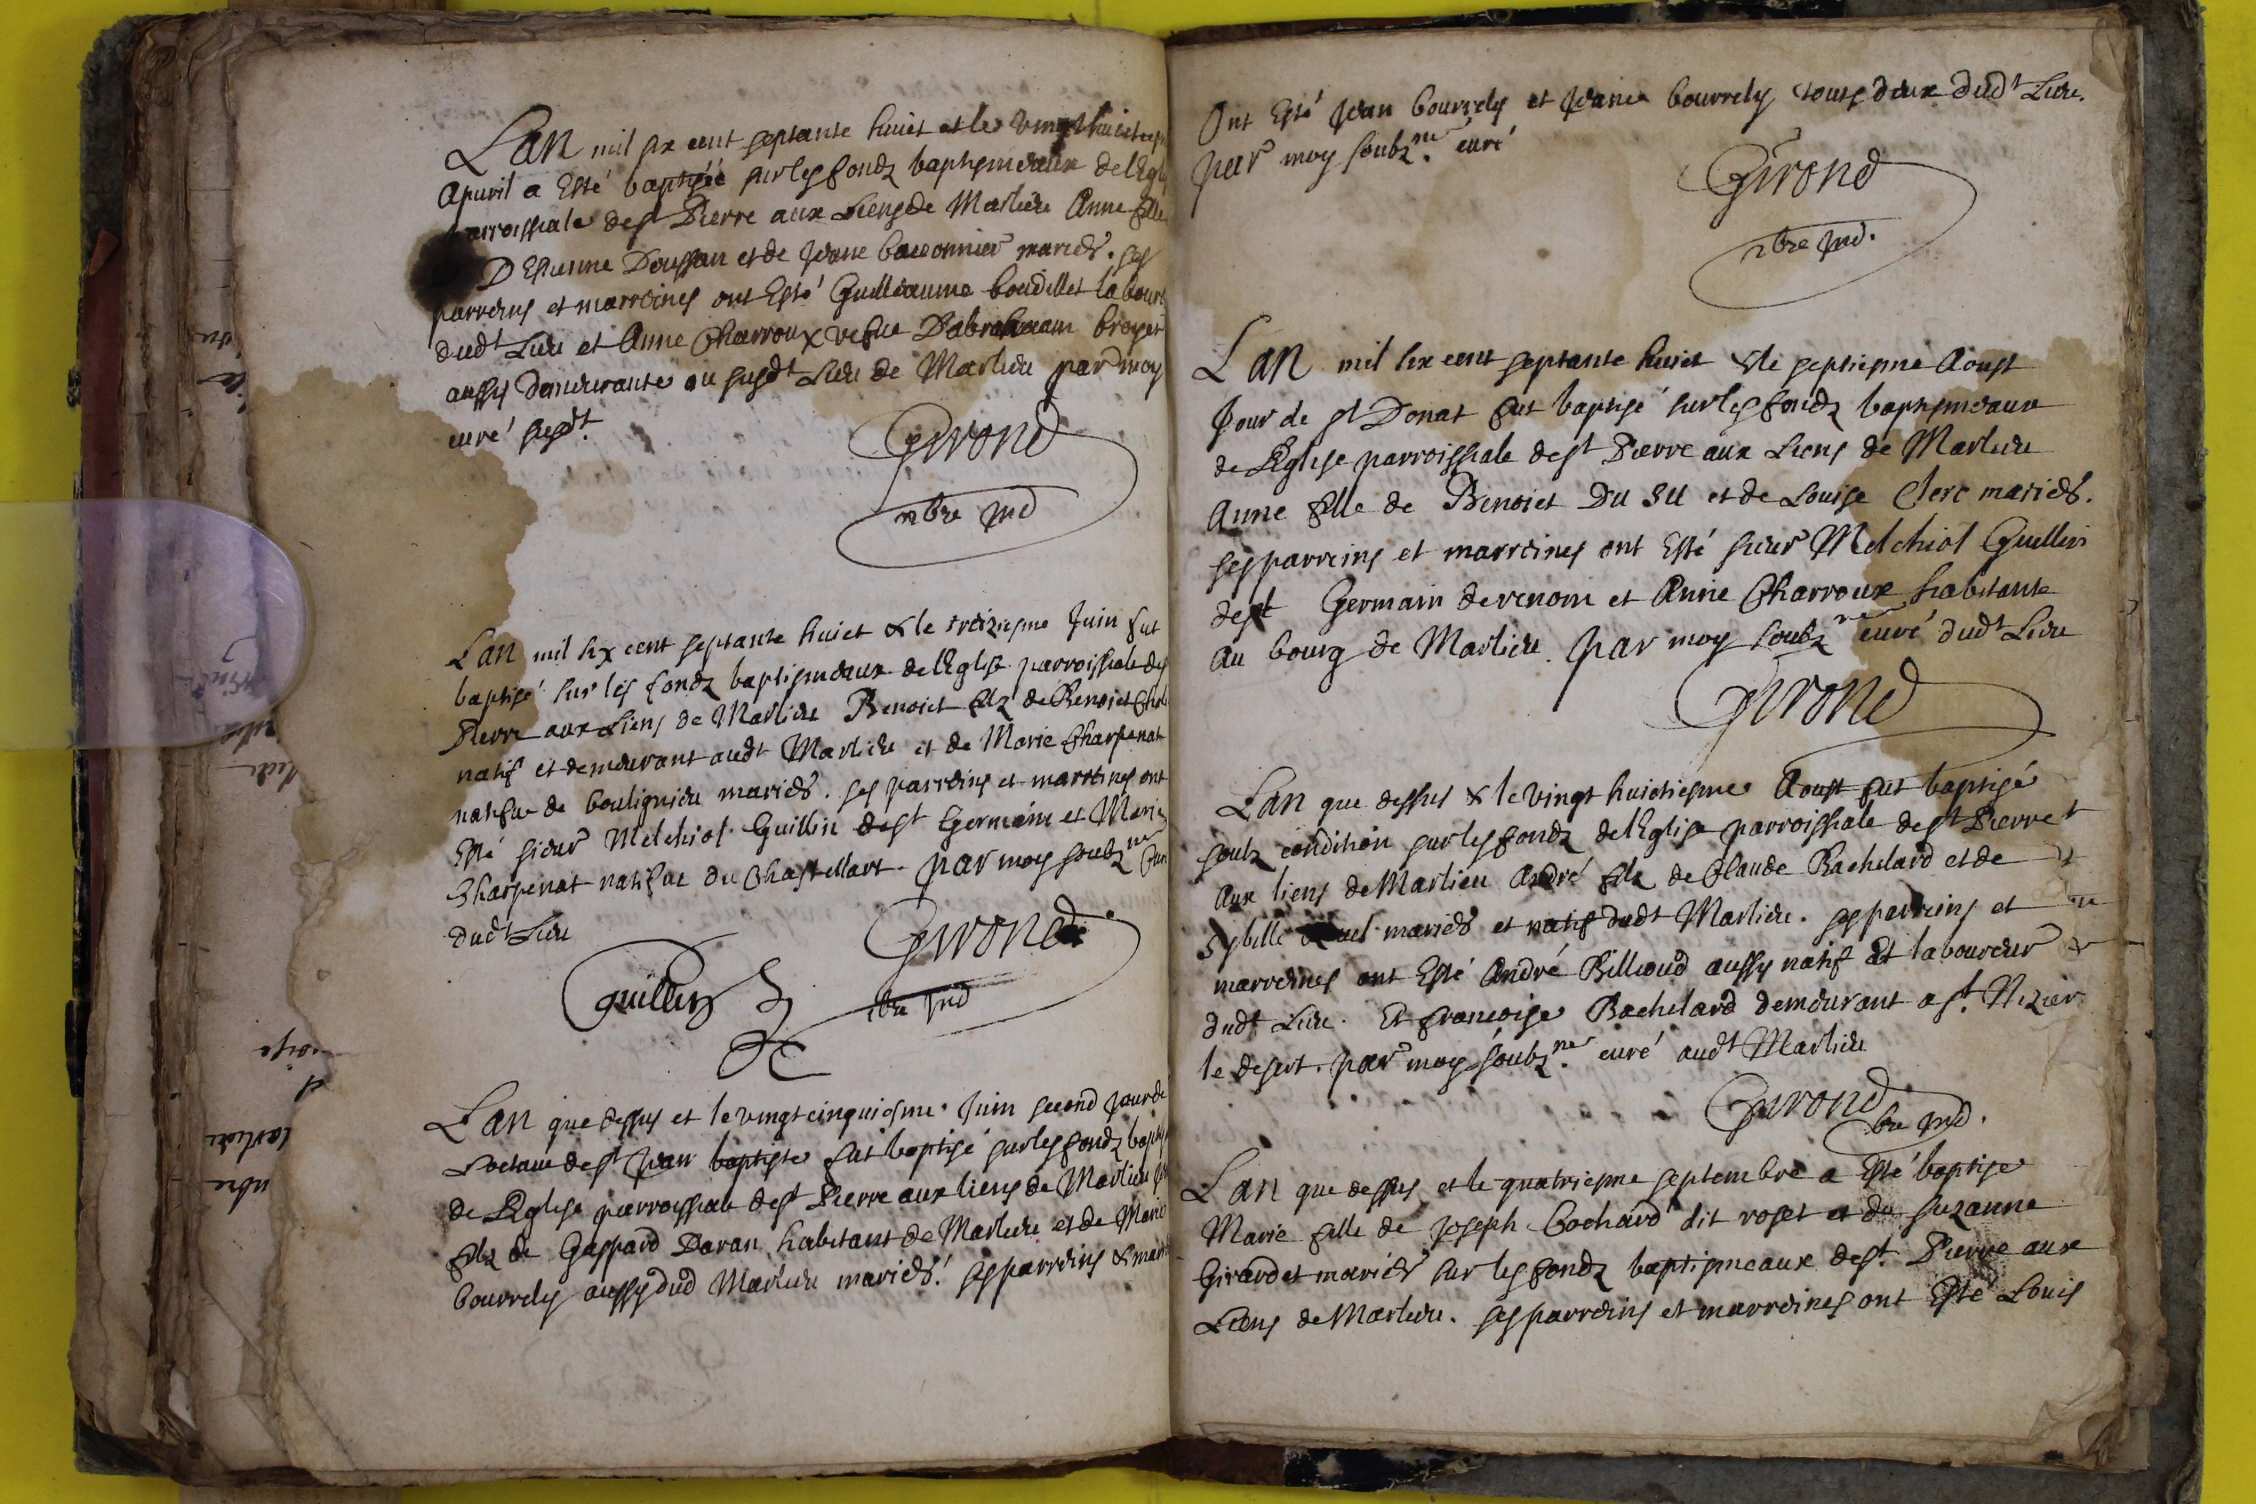 Lan mil six cent septante huict et le vingt huictiesme
Apuril a Esté baptisée sur les fondz baptismeaux de lEgl
parroissiale de st Pierre aux Liens de Marlieu Anne fille
D Estienne Doussan et de Jeane baconnier mariés. ses
parreins et marreines ont Esté Guilleaume boudillet labour
dudt Lieu et Anne Charroux vefue Dabraham broyer
aussy Demeurante au susdt Lieu de Marlieu par moy
curé susdt.
Girond
nbre Ind
Lan mil six cent septante huict & le treiziesme Juin fut
baptisé sur les fondz baptismeaux de lEglise parroissiale de st
Pierre aux Liens de Marlieu Benoict filz de Benoict
natif et demeurant audt Marlieu et de Marie Charpenat
natifue de bouligneu mariés. ses parreins et marreines ont
Esté sieur Melchiol Guillin de st Germain et Marie
Charpenat natifue du Chastellart. par moy soubzne
dudt Lieu
Girond
Guillin
nbre Ind
Lan que dessus et le vingt cinquiesme Juin second jour de
Loctaue de st Jean baptiste fut baptisé sur les fondz bapti
de lEglise parroissiale de st Pierre aux liens de Marlieu
filz de Gaspard Daran habitant de Marlieu et de Marie
bourrely aussy dud Marlieu mariés. ses parreins & mar
Ont Esté Jean bourrely et Jeane bourrely tous deux dudt Lieu.
par moy soubzne. curé
Girond
nbre Ind.
Lan mil six cent septante huict & le septiesme Aoust
Jour de st Donat fut baptisé sur les fondz baptismeaux
de lEglise parroissiale de st Pierre aux Liens de Marlieu
Anne fille de Benoict Du Su et de Louise Clerc mariés.
ses parreins et marreines ont Esté sieur Melchiol Guillin
de st Germain de renom et Anne Charroux habitante
au bourg de Marlieu. par moy soubzne curé dudt Lieu
Girond
Lan que dessus & le vingt huictiesme Aoust fut baptisé
soubz condition sur les fondz de lEglise parroissiale de st Pierre
aux liens de Marlieu André filz de Claude Bachelard et de
Sybille mariés et natif dudt Marlieu. ses parreins et
marreines ont Esté André Billioud aussy natif et laboureur
dudt Lieu. Et francoise Bachelard demeurant a st. Nizier
le desert. par moy soubzne. curé audt Marlieu
Girond
nbre Ind.
Lan que dessus et le quatriesme septembre a Esté baptise
Marie fille de Joseph Cochard dit roset et de suzanne
Girardet mariés sur les fondz baptismeaux de st. Pierre aux
Liens de Marlieu. ses parreins et marreines ont Esté Louis